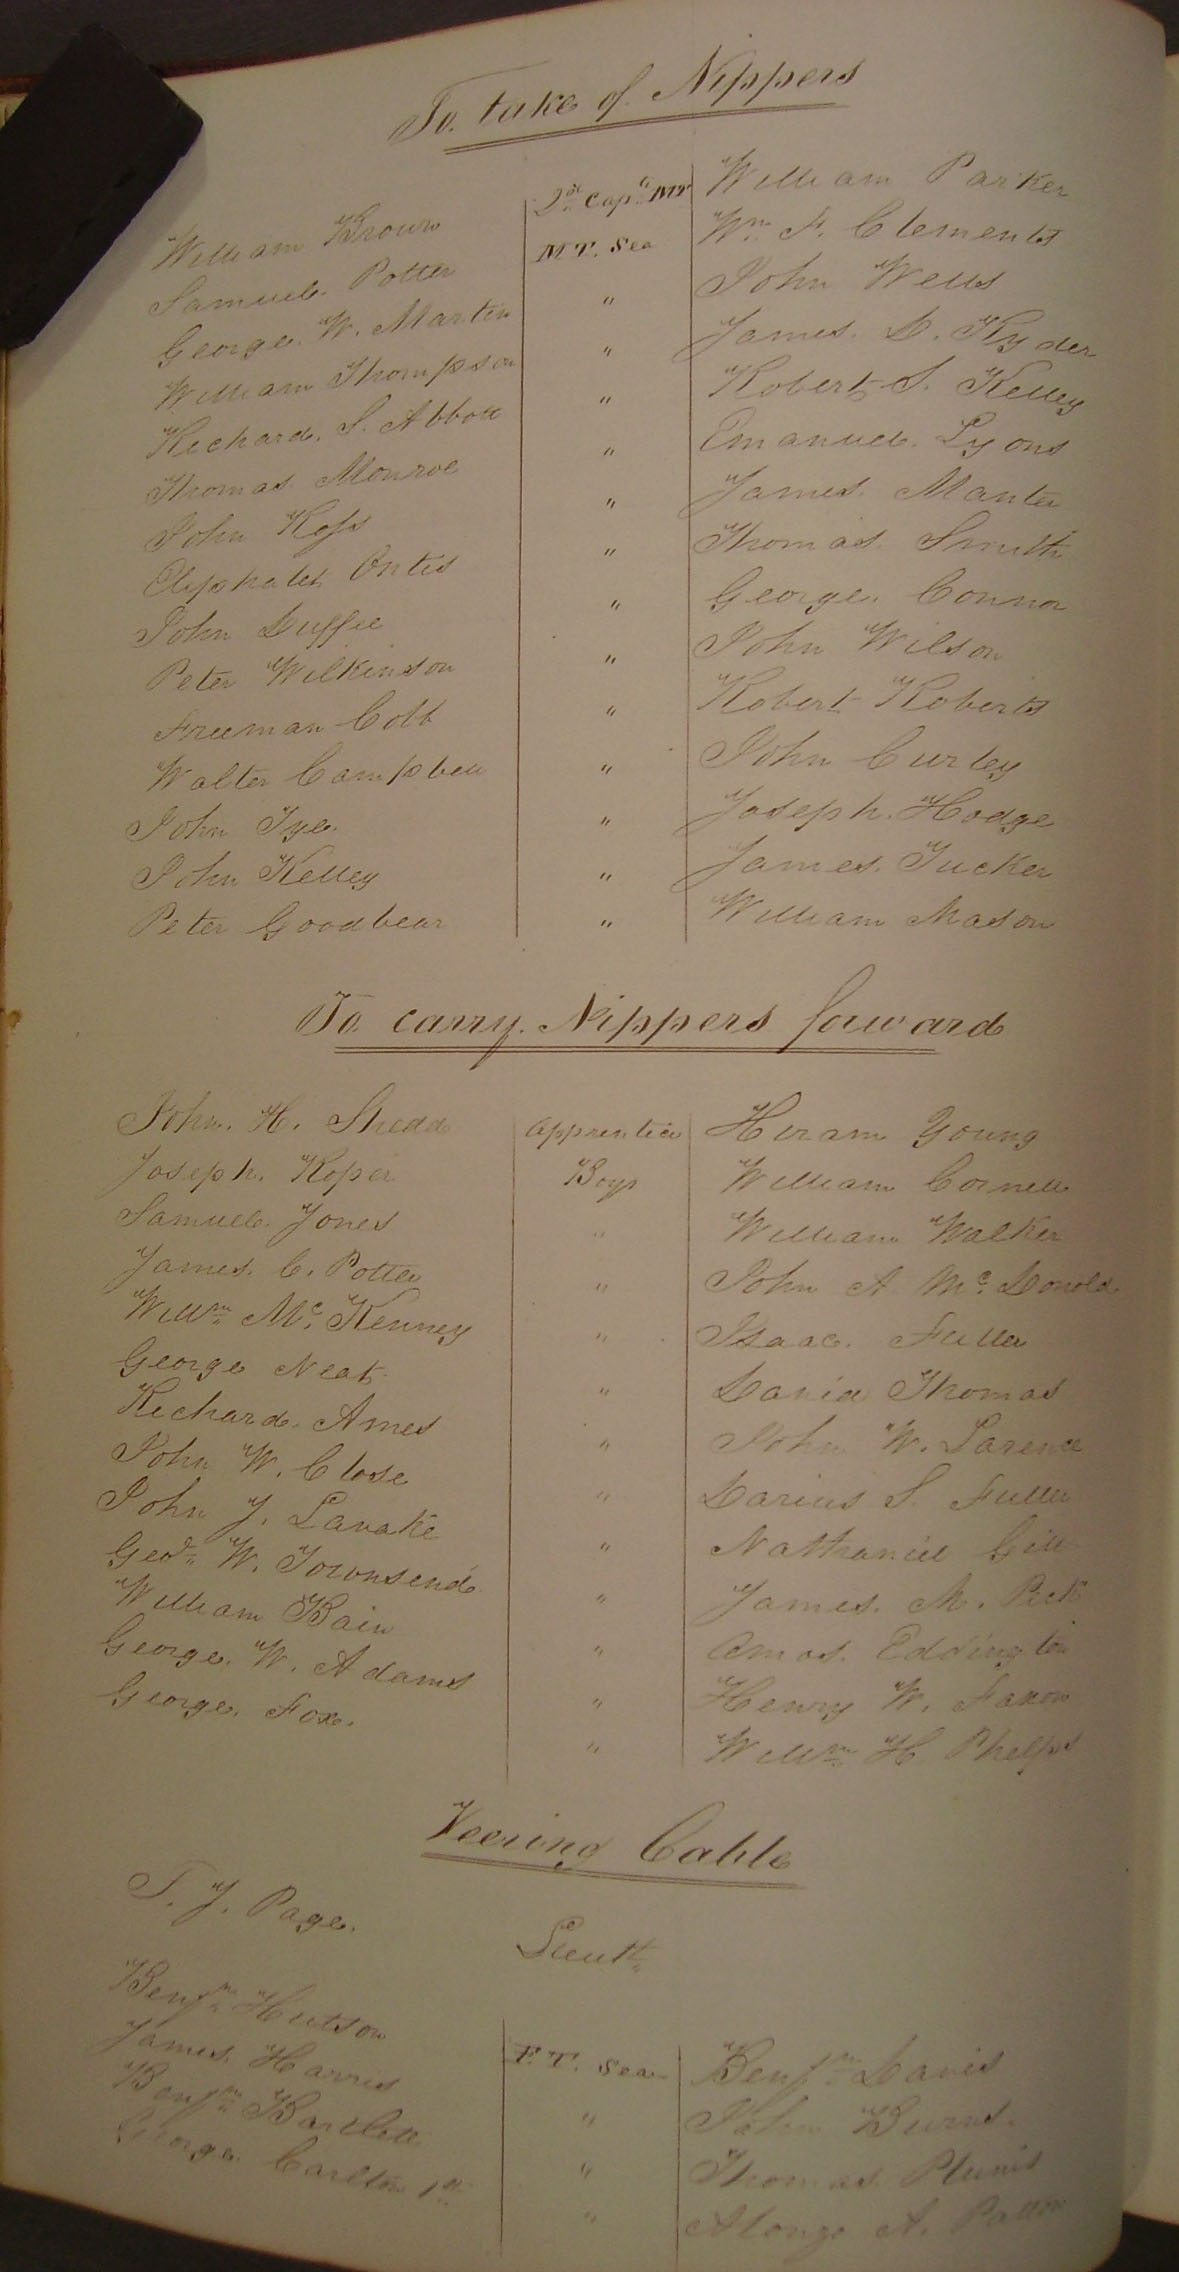 To take of Nippers
William Brown 2d Capt. MT William Parker
Samuel Potter MT. Sea Wm. F. Clements
George W. Martin " John Wells
William Thompson " James D. Ryder
Richard S. Abbott " Robert S. Kelley
Thomas Monroe " Emanuel Lyons
John Ross " James Manter
Eliphalet Ontis " Thomas Smith
John Duffie " George Connor
Peter Wilkinson " John Wilson
Freeman Cobb " Robert Roberts
Walter Campbell " John Curley
John Tye " Joseph Hodge
John Kelley " James Tucker
Peter Goodbear " William Mason
To carry Nippers forward
John. H. Shedd Apprentice Hiram Young
Joseph Roper Boys William Cornell
Samuel Jones " William Walker
James C. Potter " John A McDonold
Willm Mc.Kenney " Isaac Fuller
George Neat " David Thomas
Richard Ames " John W. Larence
John W. Close " Darius S. Fuller
John J. Lavake " Nathaniel Gill
Geo. W. Townsend " James M. Peck
William Bain " Amos Eddington
George W. Adams " Henry W. Faxon
George Fox. " Willm H. Phelps
Veering Cable
T. J. Page. Lieut
Benjn Hutson F.T. Sea Benjn Davis
James Harris " John Burns.
Benjn Bartlett " Thomas
George Carlton 1st " Alonzo A. Patton